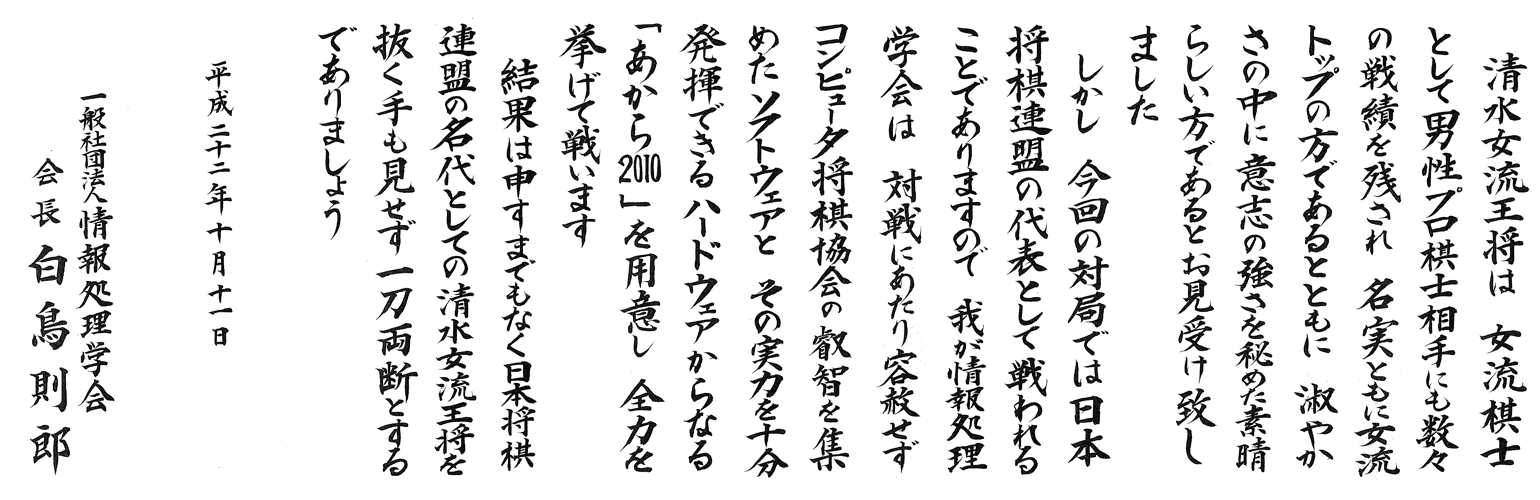 清水女流王将は　女流棋士
として男性プロ棋士相手にも数々
の戦績を残され　名実ともに女流
トップの方であるとともに　淑やか
さの中に意志の強さを秘めた素晴
らしい方であるとお見受け致し
ました
しかし　今回の対局では日本
将棋連盟の代表として戦われる
ことでありますので　我が情報処理
学会は　対戦にあたり容赦せず
コンピュータ将棋協会の叡智を集
めたソフトウェアと　その実力を十分
発揮できるハードウェアからなる
「あから2010」を用意し　全力を
挙げて戦います
結果は申すまでもなく日本将棋
連盟の名代としての清水女流王将を
抜く手も見せず一刀両断とする
でありましょう
平成二十二年十月十一日
一般社団法人情報処理学会
会長　白鳥則郎